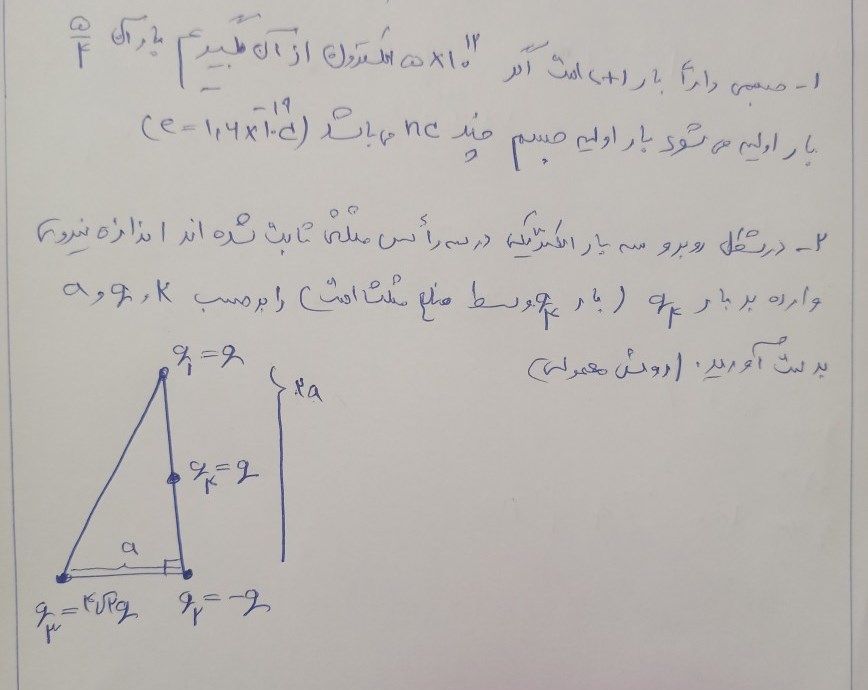 ۱- جسمی دارا بار (+) است اگر ۵×۱۰^۱۲ الکترون از آن بگیریم بار آن ۵/۴
بار اولیه می شود بار اولیه جسم چند nc می باشد (e = ۱,۶×۱۰^-۱۹ c)
۲- در شکل روبرو سه بار الکتریکی در سه رأس مثلثی ثابت شده اند اندازه نیروی
وارده بر بار q۴ (بار q۴ وسط ضلع مثلث است) را برحسب k، q و a
بدست آورید. (روش معمولی)
q۱ = q
۲a
q۴ = q
a
q۳ = ۴√۲q q۲ = -q